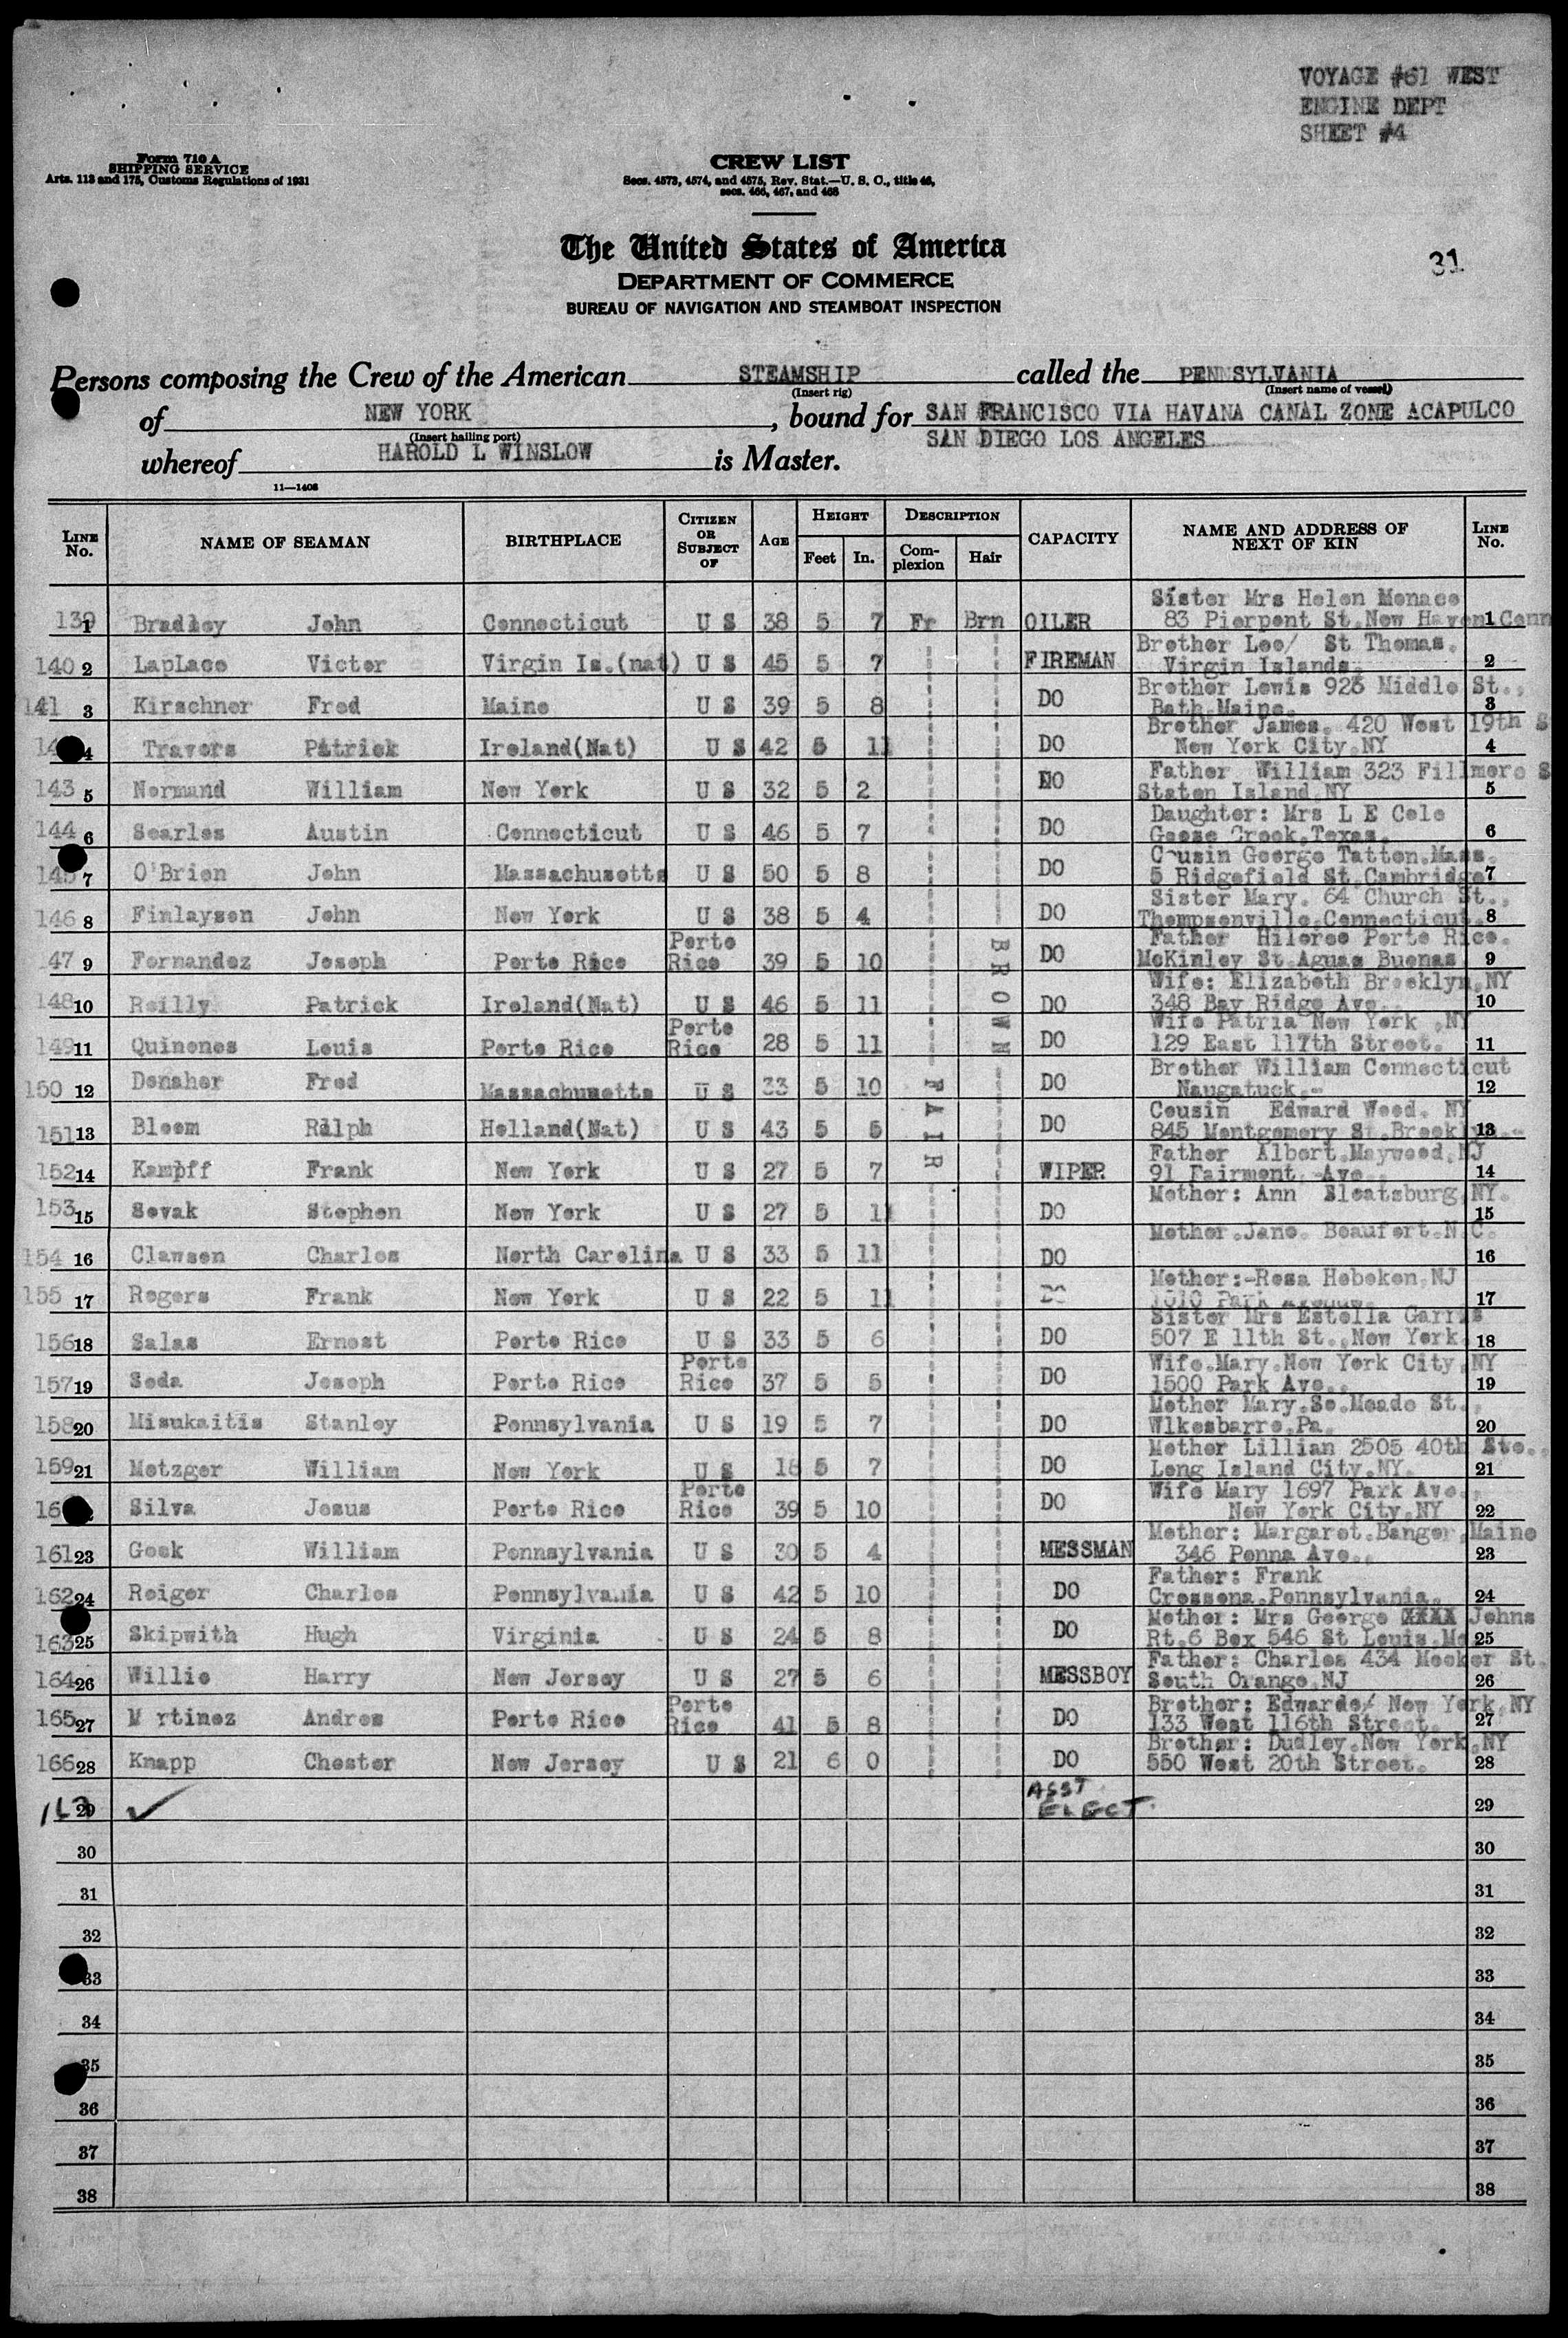 VOYAGE #61 WEST
ENGINE DEPT
SHEET #4
Form 710 A
SHIPPING SERVICE
Arts. 113 and 175, Customs Regulations of 1931
CREW LIST
Secs. 4573, 4574, and 4575, Rev. Stat.—U. S. C., title 46,
secs. 466, 467, and 468
The United States of America
DEPARTMENT OF COMMERCE
BUREAU OF NAVIGATION AND STEAMBOAT INSPECTION
31
Persons composing the Crew of the American STEAMSHIP called the PENNSYLVANIA
(Insert rig) (Insert name of vessel)
of NEW YORK, bound for SAN FRANCISCO VIA HAVANA CANAL ZONE ACAPULCO
(Insert hailing port) SAN DIEGO LOS ANGELES
whereof HAROLD L WINSLOW is Master.
11—1406
LINE No. NAME OF SEAMAN BIRTHPLACE CITIZEN OR SUBJECT OF AGE HEIGHT Feet In. DESCRIPTION Complexion Hair CAPACITY NAME AND ADDRESS OF NEXT OF KIN LINE No.
Sister Mrs Helen Menace
139 1 Bradley John Connecticut U S 38 5 7 Fr Brn OILER 83 Pierpont St.New Haven Conn 1
Brother Leo/ St Thomas.
140 2 LapLace Victor Virgin Is.(nat) U S 45 5 7 FIREMAN Virgin Islands. 2
Brother Lewis 926 Middle St.,
141 3 Kirschner Fred Maine U S 39 5 8 DO Bath Maine. 3
Brother James. 420 West 19th S
14 4 Travers Patrick Ireland(Nat) U S 42 5 11 DO New York City.NY 4
Father William 323 Fillmore S
143 5 Normand William New York U S 32 5 2 DO Staten Island NY 5
Daughter: Mrs L E Cole
144 6 Searles Austin Connecticut U S 46 5 7 DO Goose Creek.Texas. 6
Cousin George Tatton.Mass.
145 7 O'Brien John Massachusetts U S 50 5 8 DO 5 Ridgefield St.Cambridge 7
Sister Mary. 64 Church St.,
146 8 Finlaysen John New York U S 38 5 4 DO Thompsonville.Connecticut. 8
Porto Father Hiloreo Porto Rico.
47 9 Fernandez Joseph Porto Rico Rico 39 5 10 DO McKinley St.Aguas Buenas 9
Wife: Elizabeth Brooklyn,NY
148 10 Reilly Patrick Ireland(Nat) U S 46 5 11 DO 348 Bay Ridge Ave. 10
Porto Wife Patria New York ,NY
149 11 Quinones Louis Porto Rico Rico 28 5 11 DO 129 East 117th Street. 11
Brother William Connecticut
150 12 Denaher Fred Massachusetts U S 33 5 10 DO Naugatuck.- 12
Cousin Edward Weed. NY
151 13 Bloom Ralph Holland(Nat) U S 43 5 5 DO 845 Montgomery St.Brooklyn.- 13
Father Albert.Maywood.NJ
152 14 Kampff Frank New York U S 27 5 7 WIPER 91 Fairmont. Ave. 14
Mother: Ann Sloatsburg,NY.
153 15 Sovak Stephen New York U S 27 5 11 DO 15
Mother.Jane. Beaufort.N.C.
154 16 Clawsen Charles North Carolina U S 33 5 11 DO 16
Mother:-Rosa Hoboken,NJ
155 17 Rogers Frank New York U S 22 5 11 DO 1510 Park Avenue. 17
Sister Mrs Estella Garris
156 18 Salas Ernest Porto Rico U S 33 5 6 DO 507 E 11th St.,New York 18
Porto Wife.Mary.New York City,NY
157 19 Soda Joseph Porto Rico Rico 37 5 5 DO 1500 Park Ave. 19
Mother Mary.So.Meade St.,
158 20 Misukaitis Stanley Pennsylvania U S 19 5 7 DO Wlkesbarre.Pa. 20
Mother Lillian 2505 40th Ste.,
159 21 Metzger William New York U S 18 5 7 DO Long Island City.NY. 21
Porto Wife Mary 1697 Park Ave.,
16 Silva Jesus Porto Rico Rico 39 5 10 DO New York City.NY 22
Mother: Margaret.Bangor,Maine
161 23 Gook William Pennsylvania U S 30 5 4 MESSMAN 346 Penna Ave., 23
Father: Frank
162 24 Reiger Charles Pennsylvania U S 42 5 10 DO Cressona.Pennsylvania. 24
Mother: Mrs George XXXX Johns
163 25 Skipwith Hugh Virginia U S 24 5 8 DO Rt.6 Box 546 St Louis.Mo 25
Father: Charles 434 Meeker St.
164 26 Willie Harry New Jersey U S 27 5 6 MESSBOY South Orange,NJ 26
Porto Brother: Edwardo/ New York,NY
165 27 M rtinez Andres Porto Rico Rico 41 5 8 DO 133 West 116th Street. 27
Brother: Dudley.New York,NY
166 28 Knapp Chester New Jersey U S 21 6 0 DO 550 West 20th Street. 28
BROWN
FAIR
29 ✓ ASST ELECT. 29
30 30
31 31
32 32
33 33
34 34
35 35
36 36
37 37
38 38